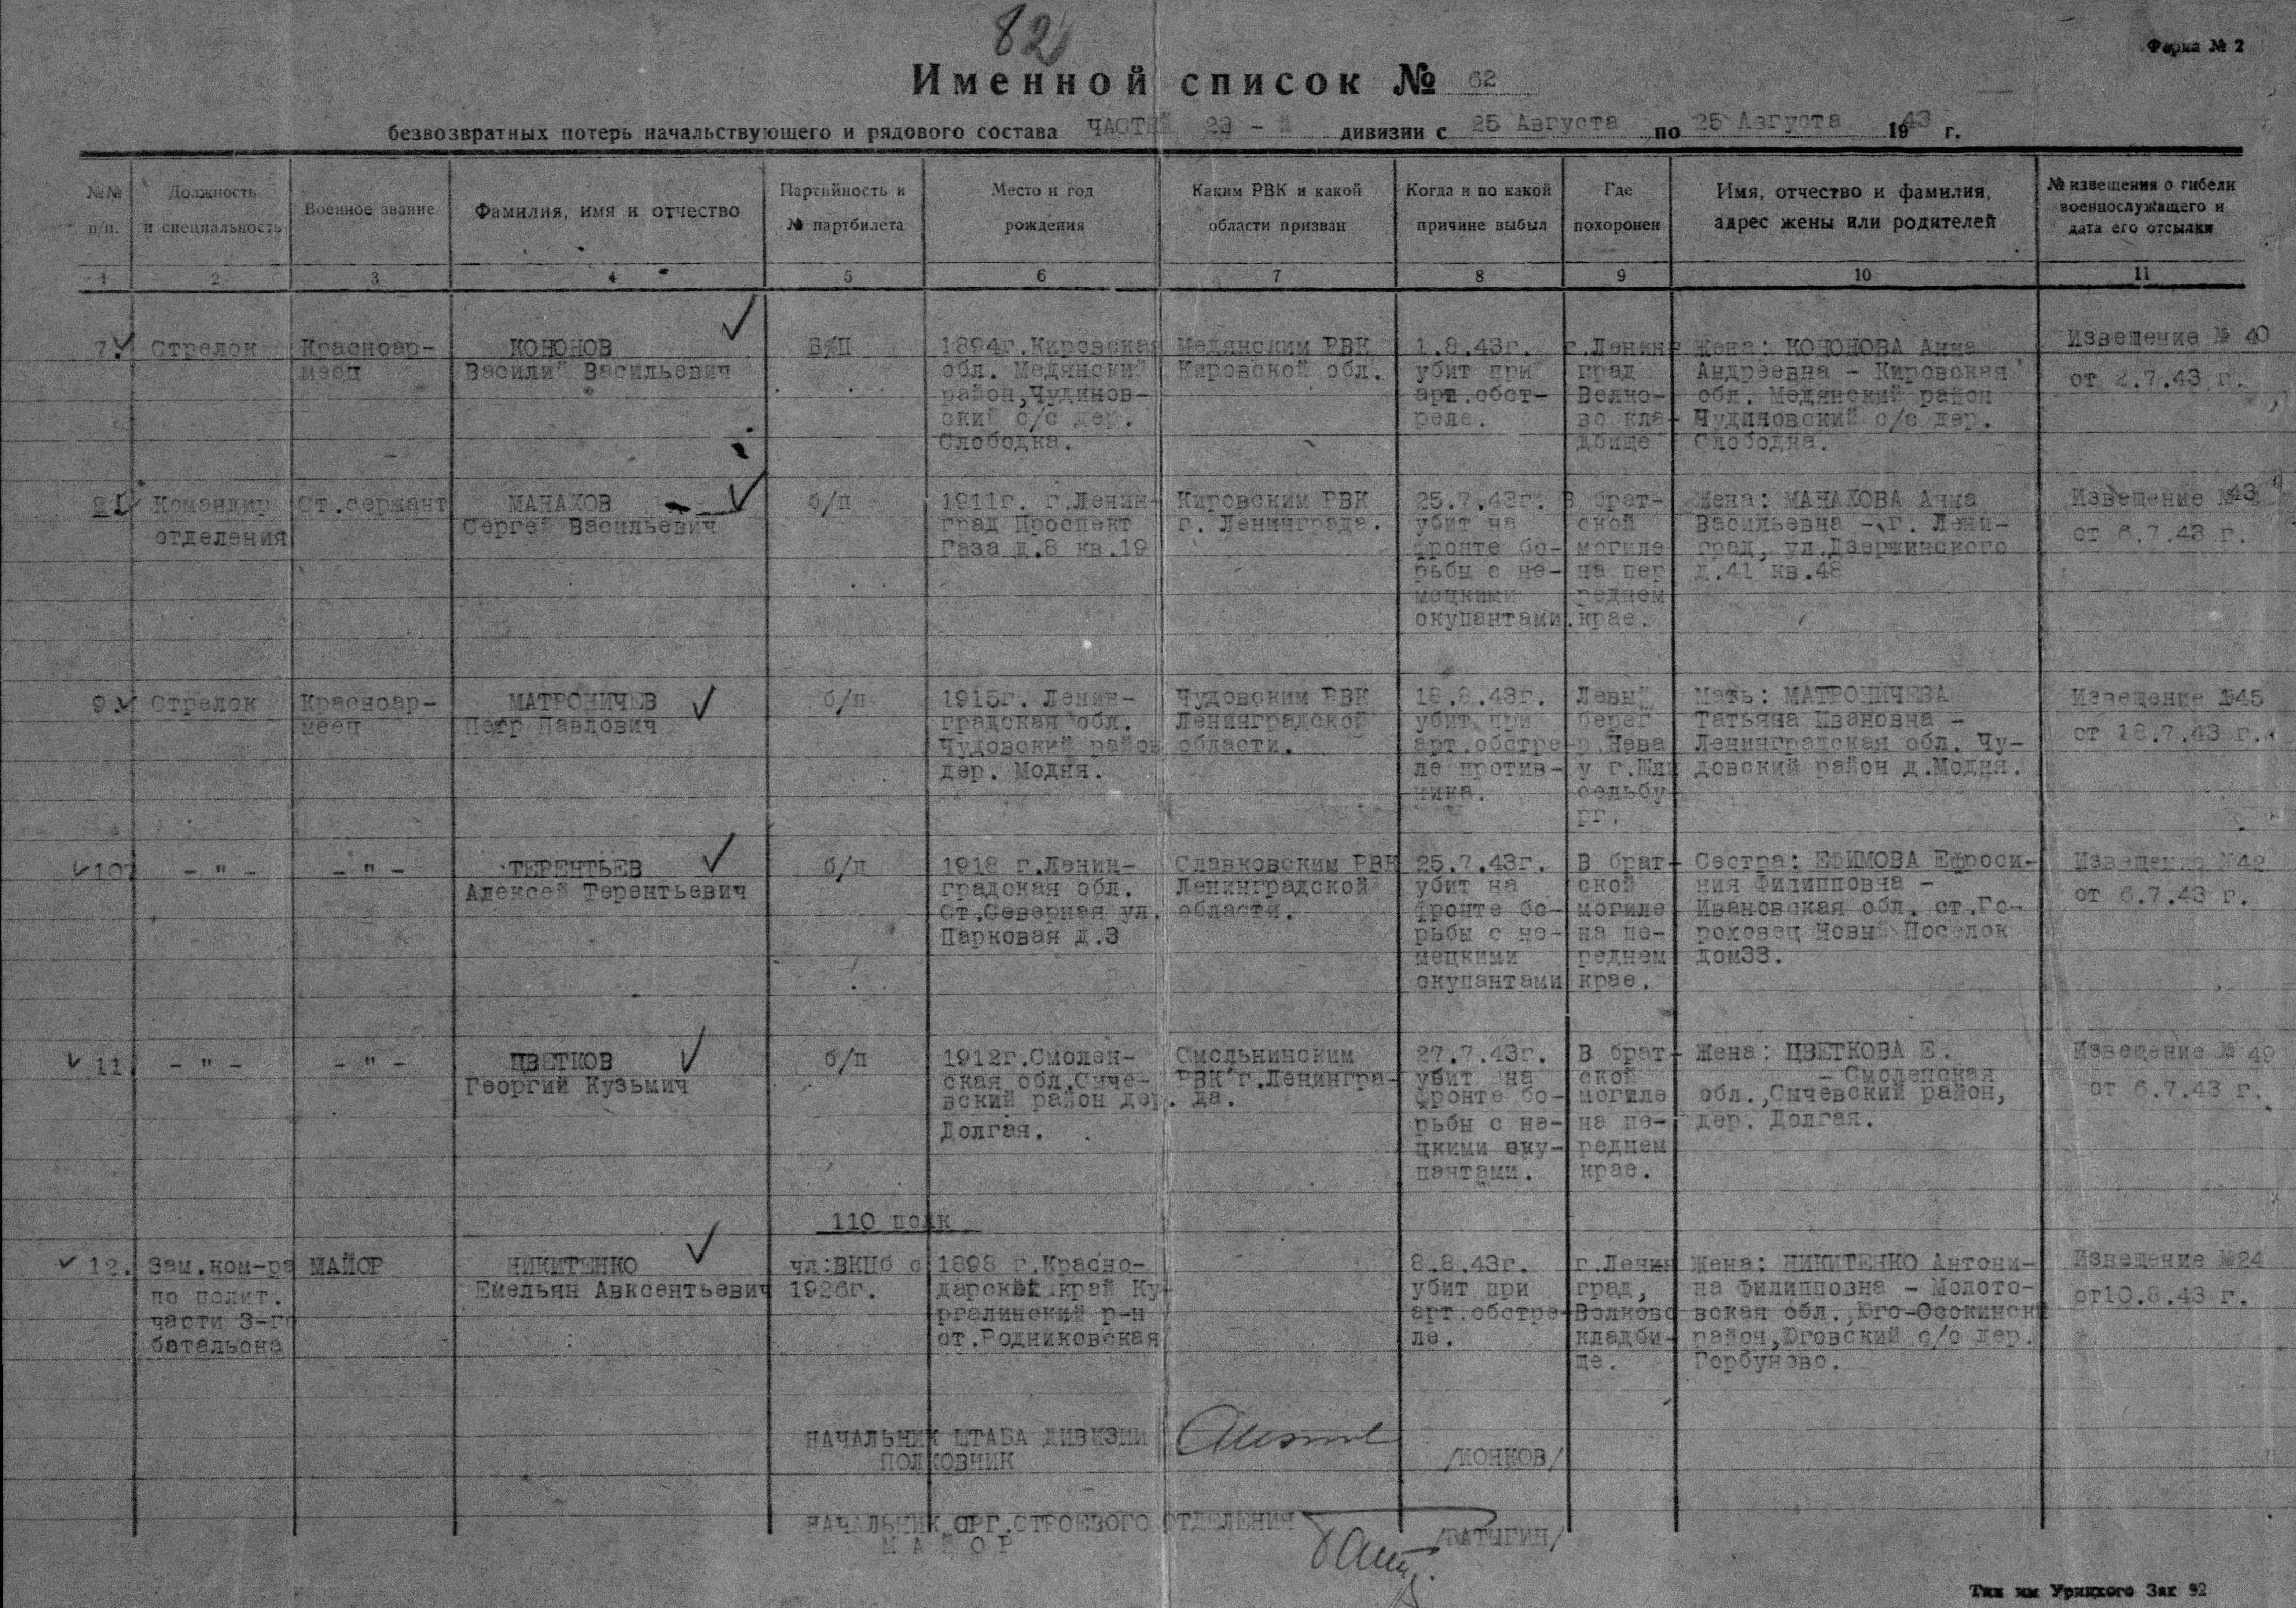 82
Форма № 2
Именной список № 62
безвозвратных потерь начальствующего и рядового состава ЧАСТЕЙ 23 - й дивизии с 25 Августа по 25 Августа 1943 г.
№№ п/п.
Должность и специальность
Военное звание
Фамилия, имя и отчество
Партийность и № партбилета
Место и год рождения
Каким РВК и какой области призван
Когда и по какой причине выбыл
Где похоронен
Имя, отчество и фамилия, адрес жены или родителей
№ извещения о гибели военнослужащего и дата его отсылки
1 2 3 4 5 6 7 8 9 10 11
7.
Стрелок
Красноар-
меец
КОНОНОВ
Василий Васильевич
Б/П
1894г.Кировская
обл. Медянский
район,Чудинов-
ский с/с дер.
Слободка.
Медянским РВК
Кировской обл.
1.8.43г.
убит при
арт.обст-
реле.
г.Ленин-
град
Волко-
во кла-
дбище
Жена: КОНОНОВА Анна
Андреевна - Кировская
обл. Медянский район
Чудиновский с/с дер.
Слободка.
Извещение № 40
от 2.7.43 г.
8.
Командир
отделения
Ст.сержант
МАНАХОВ
Сергей Васильевич
б/п
1911г. г.Ленин-
град Проспект
Газа д.8 кв.19
Кировским РВК
г. Ленинграда.
25.7.43г.
убит на
фронте бо-
рьбы с не-
мецкими
окупантами.
В брат-
ской
могиле
на пер
реднем
крае.
Жена: МАНАХОВА Анна
Васильевна - г. Лени-
град, ул.Дзержинского
д.41 кв.48
Извещение №43
от 6.7.43 г.
9.
Стрелок
Красноар-
меец
МАТРОНИЧЕВ
Петр Павлович
б/п
1915г. Ленин-
градская обл.
Чудовский район
дер. Модня.
Чудовским РВК
Ленинградской
области.
18.8.43г.
убит при
арт.обстре-
ле против-
ника.
Левый
берег
р.Нева
у г.Шли
сельбу
рг.
Мать: МАТРОНИЧЕВА
Татьяна Ивановна -
Ленинградская обл. Чу-
довский район д.Модня.
Извещение №45
от 18.7.43 г.
10
- " -
- " -
ТЕРЕНТЬЕВ
Алексей Терентьевич
б/п
1918 г.Ленин-
градская обл.
Ст.Северная ул.
Парковая д.3
Славковским РВК
Ленинградской
области.
25.7.43г.
убит на
фронте бо-
рьбы с не-
мецкими
окупантами
В брат-
ской
могиле
на пе-
реднем
крае.
Сестра: ЕФИМОВА Ефроси-
ния Филипповна -
Ивановская обл. ст.Го-
роховец Новый Поселок
дом33.
Извещение №42
от 6.7.43 г.
11
- " -
- " -
ЦВЕТКОВ
Георгий Кузьмич
б/п
1912г.Смолен-
ская обл.Сыче-
вский район дер.
Долгая.
Смольнинским
РВК г.Ленингра-
да.
27.7.43г.
убит на
фронте бо-
рьбы с не-
цкими оку-
пантами.
В брат-
ской
могиле
на пе-
реднем
крае.
Жена: ЦВЕТКОВА Е.
- Смоленская
обл.,Сычевский район,
дер. Долгая.
Извещение № 49
от 6.7.43 г.
110 полк
12.
Зам.ком-ра
по полит.
части 3-го
батальона
МАЙОР
НИКИТЕНКО
Емельян Авксентьевич
чл:ВКПб с
1926г.
1898 г.Красно-
дарский край Ку-
ргалинский р-н
ст.Родниковская
8.8.43г.
убит при
арт.обстре-
ле.
г.Ленин
град,
Волково
кладби-
ще.
Жена: НИКИТЕНКО Антони-
на Филипповна - Молото-
вская обл.,Юго-Осокинский
район,Юговский с/с дер.
Горбуново.
Извещение №24
от10.8.43 г.
НАЧАЛЬНИК ШТАБА ДИВИЗИИ
ПОЛКОВНИК
/МОЧКОВ/
НАЧАЛЬНИК ОРГ.СТРОЕВОГО ОТДЕЛЕНИЯ
МАЙОР
/ВАТЫГИН/
Тип им Урицкого Зак 92